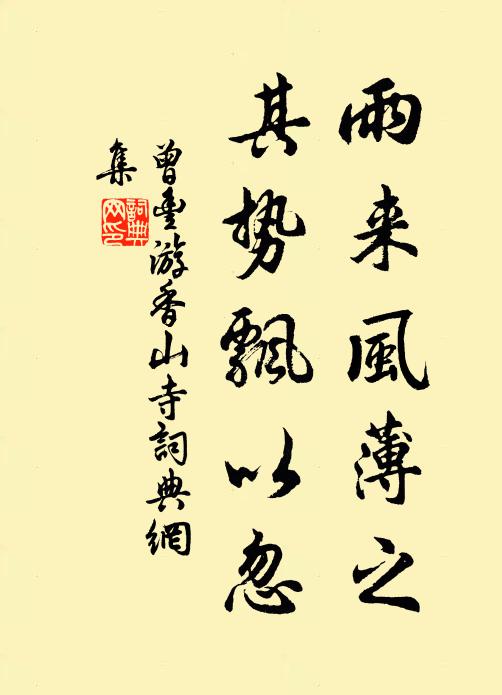 雨来風薄之
其势飄以忽
曾豊游香山寺詞典網
集
詞典
网印